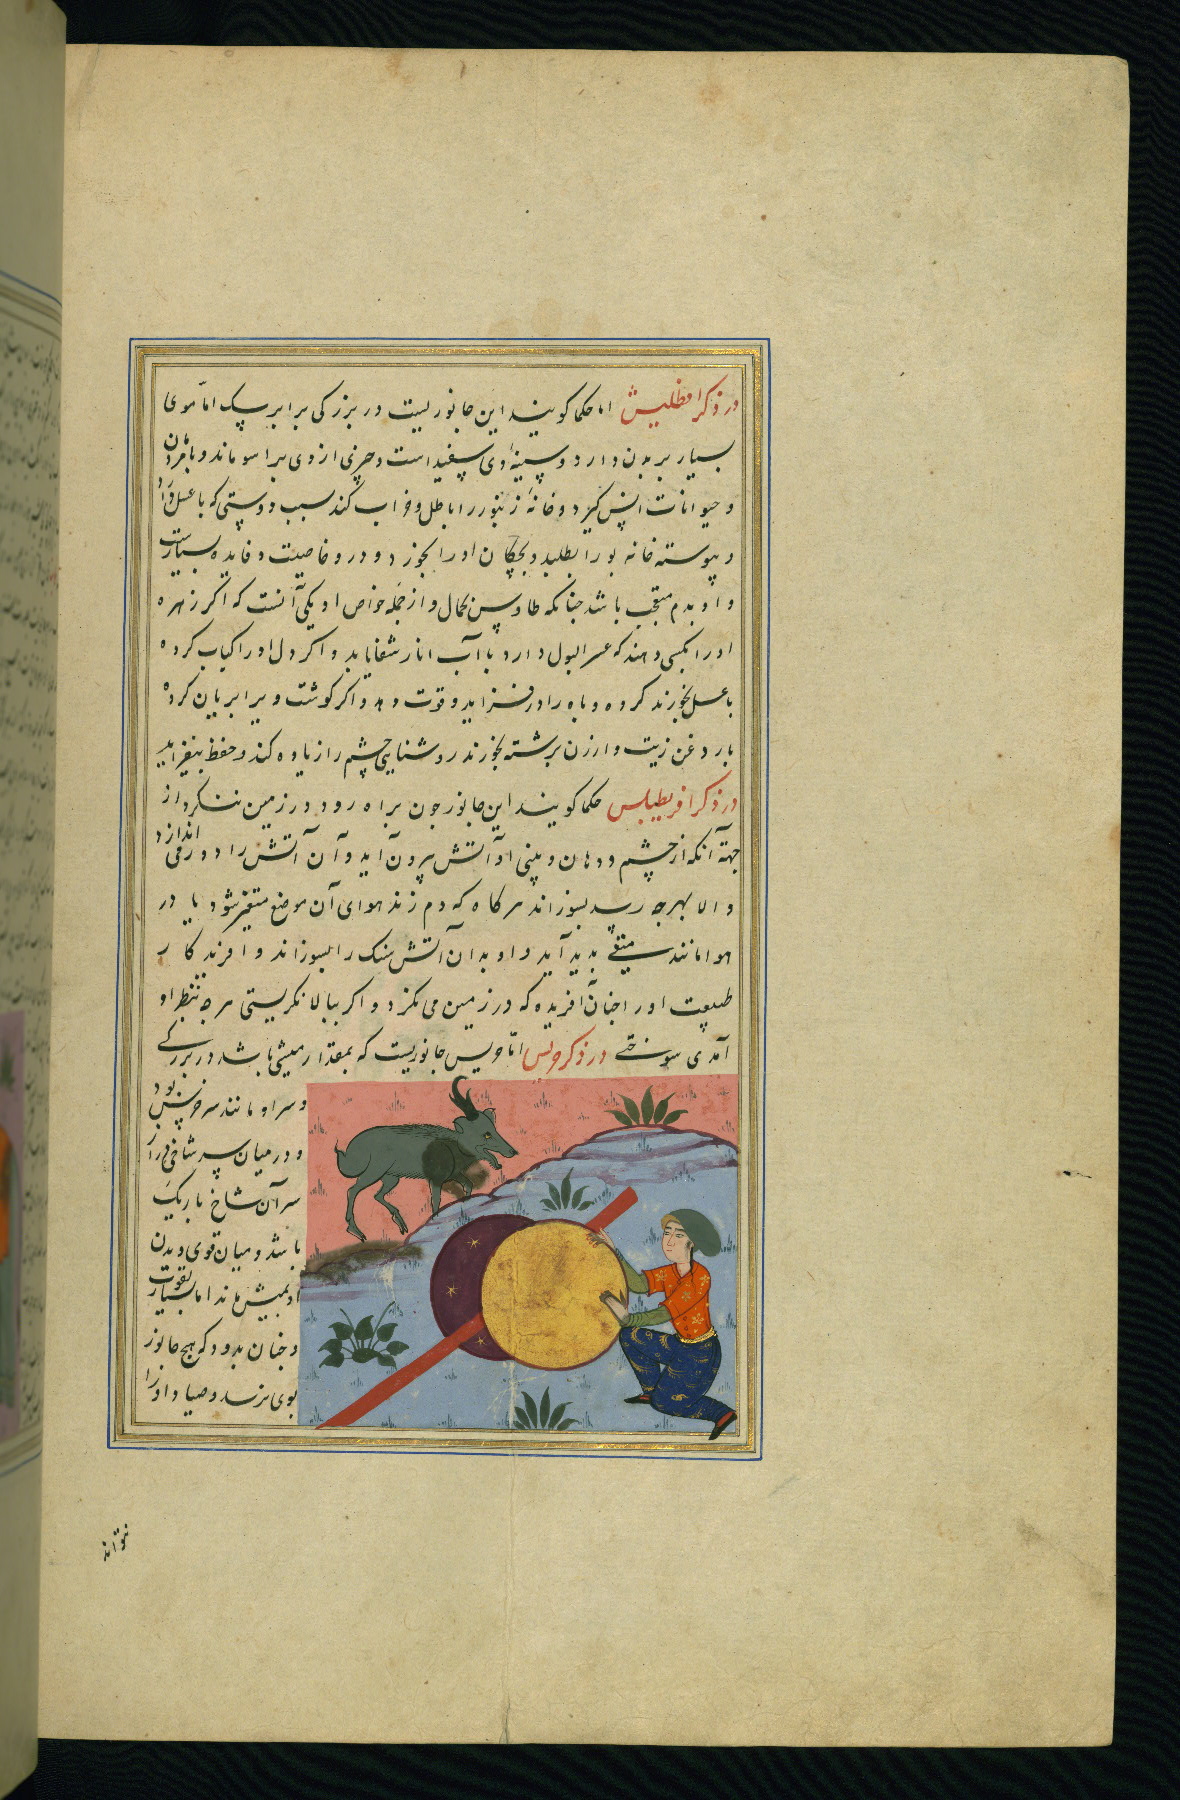 در ذکر امطلیش اما حکما کویند این جانوریست در بزرکی برابر سک اما موی
بسیار بر بدن دارد و سینهٔ وی سفید است و چیزی از وی براسو ماند و با مردمان
و حیوانات انس کیرد و خانهٔ زنبور را باطل و خراب کند سبب دوستی که با عسل دارد
و پیوسته خانه بورا بطلبد و بچکان او را بخورد و در و خاصیت و فایده بسیارست
و او بدم متعجب باشد چنانکه طاوس بکمال و از جمله خواص او یکی آنست که اکر زهره
او را بکسی دهند که عسر البول دارد با آب انار شفا یابد و اکر دل او را کباب کرده
با عسل بخورند کرده و باه را در فزاید و قوت دهد و اکر کوشت ویرا بریان کرده
با روغن زیت و ارزن برشته بخورند روشنایی چشم را زیاده کند و حفظ بیفزاید
در ذکر افریطیاس حکما کویند این جانور چون براه رود در زمین ننکرد از
جهة آنکه از چشم و دهان و بینی او آتش بیرون آید و آن آتش را دور می اندازد
و الا بهرجه رسد بسوزاند هرکاه که دم زند هوای آن موضع متغیر شود یا در
هوا مانند میغی بدید آید و او بدان آتش سنک را بسوزاند و آفریدکار
طبیعت او را چنان آفریده که در زمین می نکرد و اکر ببالا نکریستی هرجه بنظر او
آمدی سوختی در ذکر حریس اما حریس جانوریست که بمقدار میشی باشد در بزرکی
و سر او مانند سر خرس بود
و در میان سر شاخی دارد
سر آن شاخ باریک
باشد و میان قوی و بدن
او بمیش ماند اما بقوت بسیارست
و چنان بدود که هیچ جانور
بوی نرسد و صیاد او را
نتواند